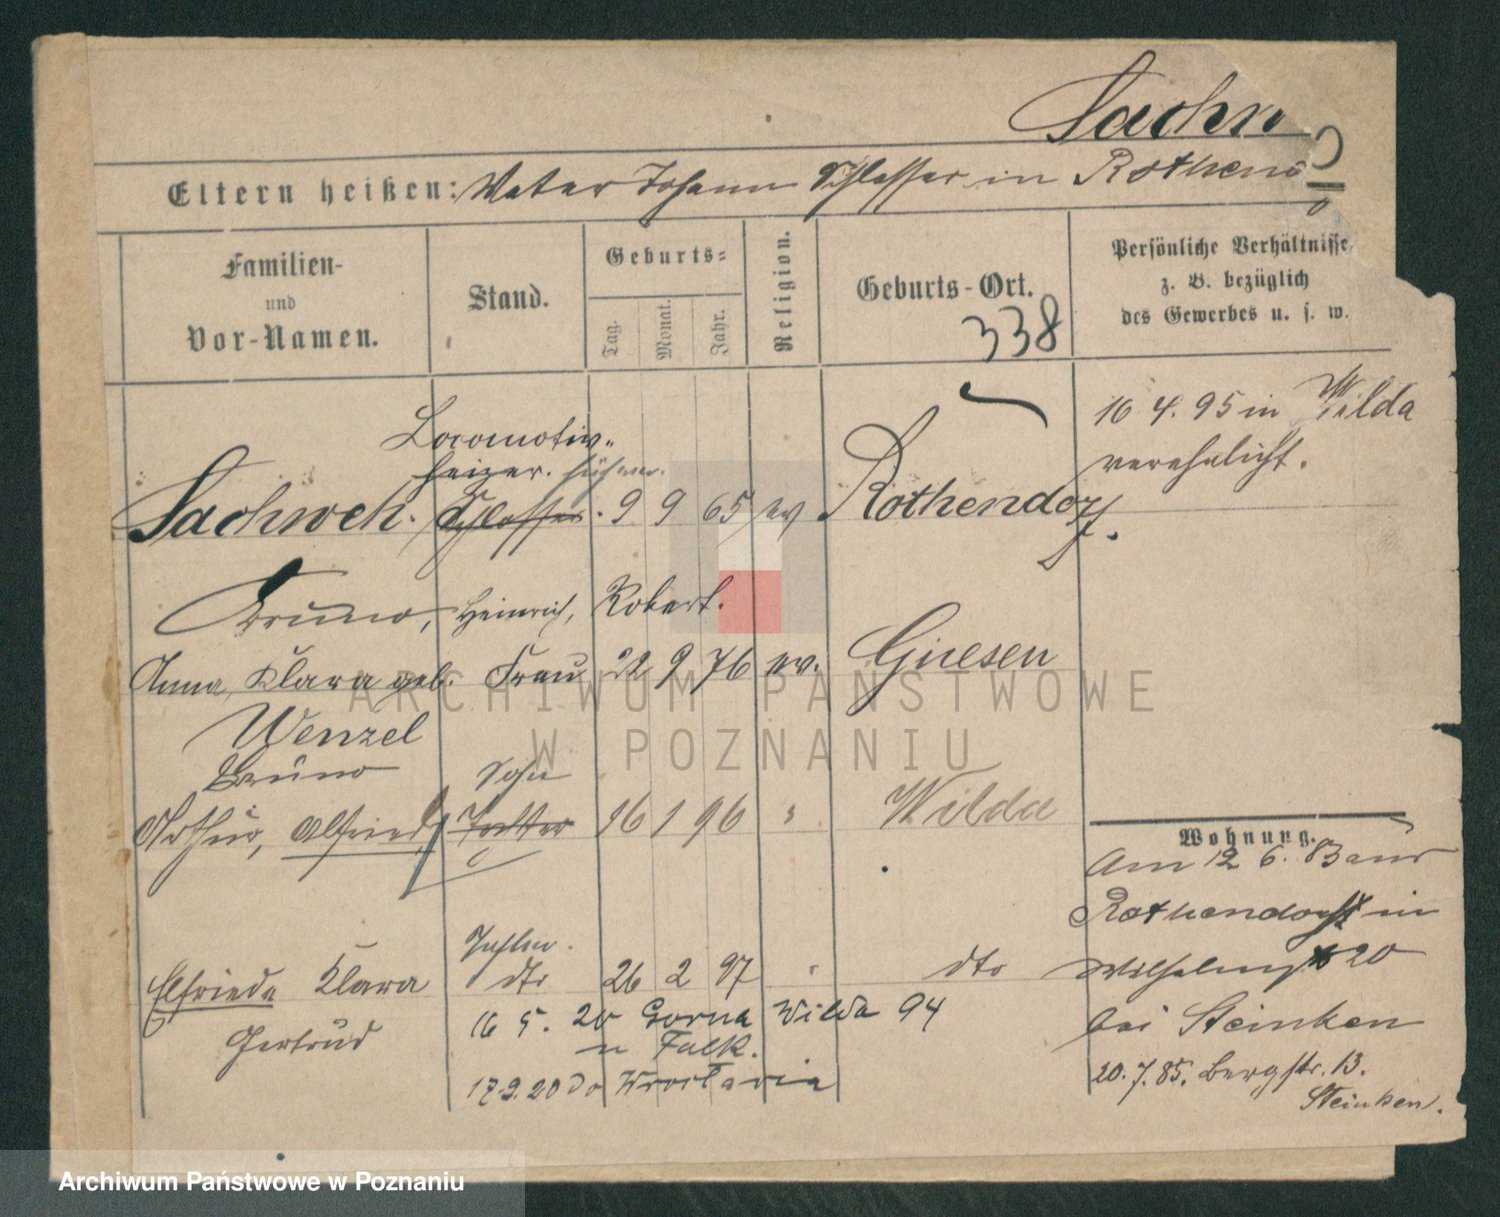 Sachw
Eltern heißen: Vater Johann Schlosser in Rothend
Familien-
und
Vor-Namen.
Stand.
Geburts-
Tag.
Monat.
Jahr.
Religion.
Geburts-Ort.
338
Persönliche Verhältnisse
z. B. bezüglich
des Gewerbes u. s. w.
Locomotiv-
heizer. führer.
Sachweh. Schlosser. 9 9 65 ev Rothendorf.
10 4. 95 in Wilda
verehelicht.
Bruno, Heinrich, Robert.
Anna, Klara geb. Frau 22 9 76 ev. Gnesen
Wenzel
Bruno Sohn
Arthur, Alfried Tochter 16 1 96 " Wilda
Wohnung.
Am 12 6. 83 aus
Rothendorf in
Wilhelmstr 20
bei Steinken
20. 7. 85. Bergstr. 13.
Steinken.
Tochter.
Elfriede Klara dto 26 2 97 " dto
Gertrud
16 5. 20 Gorna Wilda 94
n Falk.
17 9. 20 do Wroclawia
ARCHIWUM PAŃSTWOWE
W POZNANIU
Archiwum Państwowe w Poznaniu